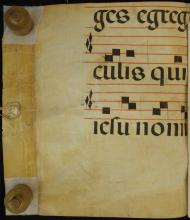 ges egreg
culis qui
iesu nomi